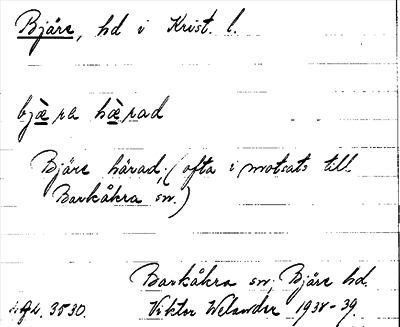 Bjäre, hd i Krist. l.
bjæ̀ra hæ̀rad
Bjäre härad, (ofta i motsats till
Barkåkra sn.)
Barkåkra sn, Bjäre hd.
3530. Viktor Welander 1938-39.